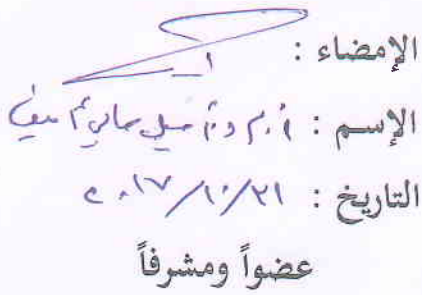 الإمضاء :
الإسم : أ.م.د.
التاريخ : ٢٠١٧/١٠/٢١
عضواً ومشرفاً